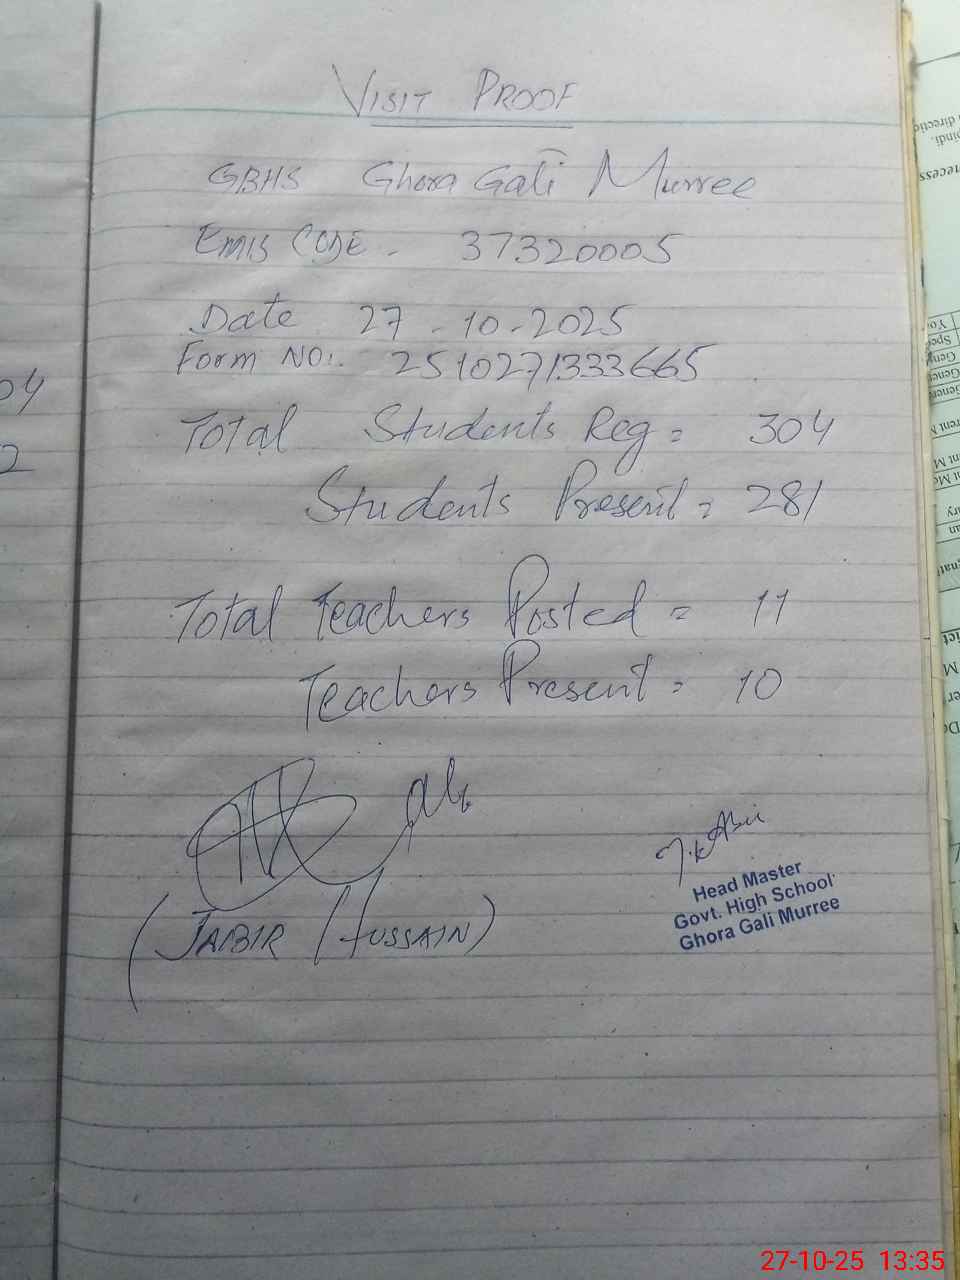 VISIT PROOF
GBHS Ghora Gali Murree
EMIS CODE - 37320005
Date 27-10-2025
Form NO:. 2510271333665
Total Students Reg = 304
Students Present = 281
Total Teachers Posted = 11
Teachers Present = 10
(JABIR HUSSAIN)
Head Master
Govt. High School
Ghora Gali Murree
04
2
27-10-25 13:35